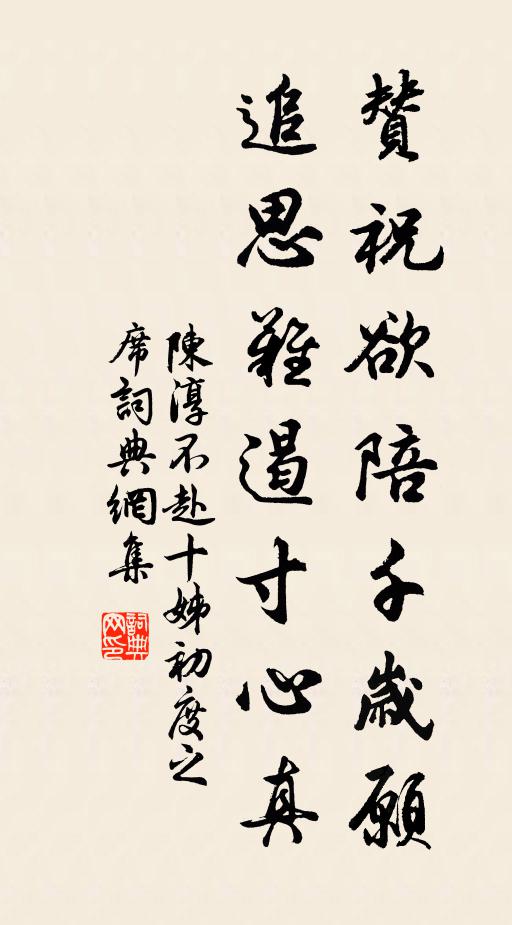 贊祝欲陪千歲願
追思難遏寸心真
陳淳不赴十姊初度之
席詞典網集
詞典
网印